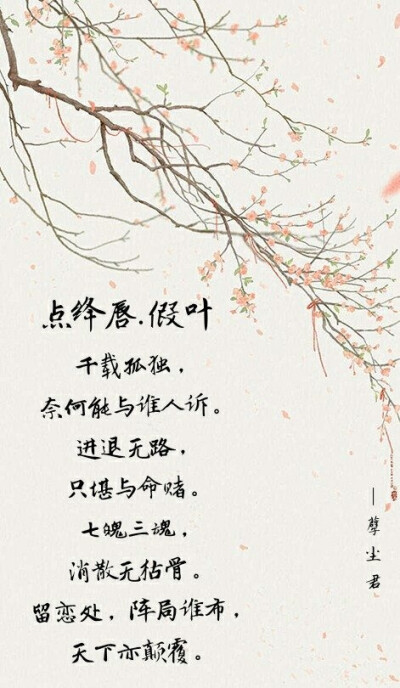 点绛唇.假叶
千载孤独，
奈何能与谁人诉。
进退无路，
只堪与命赌。
七魄三魂，
消散无秙骨。
留恋处，阵局谁布，
天下亦颠覆。
—孽尘君